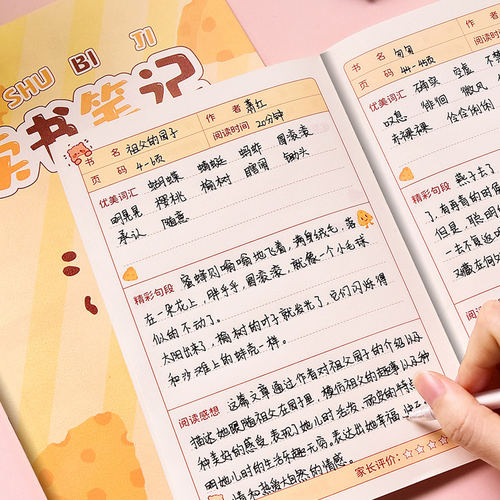 SHU BI JI
读书笔记
书 名 祖父的园子
作 者 萧红
页 码 4-6页
阅读时间 20分钟
优美词汇 蝴蝶 蜻蜓 蚂蚱 圆滚滚
明晃晃 樱桃 榆树 瞎闹 锄头
承认 随意
精彩句段 蜜蜂则嗡嗡地飞着,满身绒毛,落
在一朵花上,胖乎乎,圆滚滚,就像一个小毛球
似的不动了。
太阳出来了,榆树的叶子就发光了,它们闪烁得
和沙滩上的蚌壳一样。
阅读感想 这篇文章通过作者对祖父园子的介绍以及
描述她跟随祖父在园子里,模仿祖父的趣事以及种
种美妙的感觉,表现她儿时活泼、顽皮的特点
她儿时的生活乐趣无穷,表达出她幸福
情和热爱大自然的情感。
家长评价:
书 名 匆匆
作 者
页 码 44-45页
阅读时
优美词汇 确实 空虚
叹息 徘徊 微风
赤裸裸 伶伶俐俐
精彩句段 燕子去了
了,有再青的时
但是,聪明
一去不复返
又藏在何处
阅读感